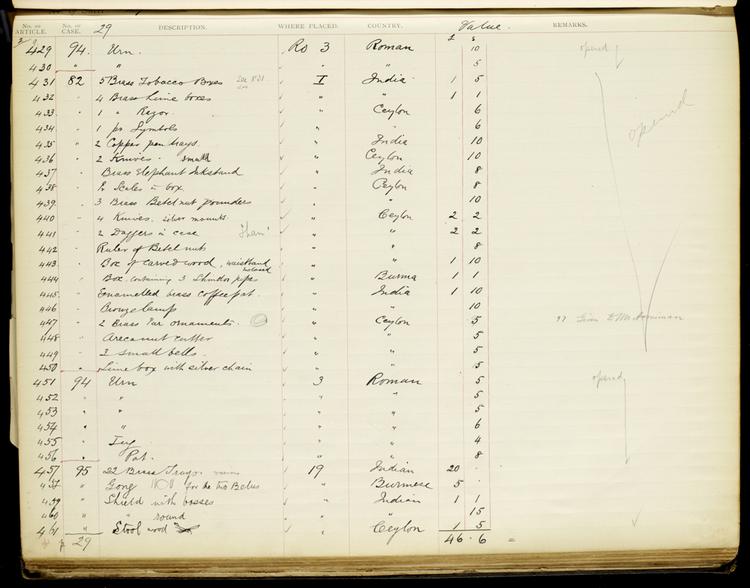 No. OF ARTICLE. No. OF CASE. 29 DESCRIPTION. WHERE PLACED. COUNTRY. Value. £ s REMARKS.
429 94. Urn. Ro 3 Roman 10 opened
430 " " " 5
431 82 5 Brass Tobacco Boxes I India 1 5
432 " 4 Brass Lime boxes " " 1 1
433 " 1 " Razor " Ceylon 6
434 " 1 pr Symbols " " 6 opened
435 " 2 Copper pen trays " India 10
436 " 2 Knives. small " Ceylon 10
437 " Brass Elephant Inkstand " India 8
438 " Scales in box " Ceylon 8
439 " 3 Brass Betel nut pounders " " 10
440 " 4 Knives. silver mounts " Ceylon 2 2
441 " 2 Daggers in case " " 2 2
442 " Ruler of Betel nuts " " 8
443 " Box of carved wood, waistband inclosed " " 1 10
444 " Box containing 3 pipes " Burma 1 1
445 " Enamelled brass coffee pot. " India 1 10
446 " Bronze lamp " " 10
447 " 2 Brass Ear ornaments. " Ceylon 5
448 " Arecanut cutter " " 5
449 " 2 small bells. " " 5
450 " Lime box with silver chain " " 5
451 94 Urn 3 Roman 5 opened
452 " " " " 5
453 " " " " 5
454 " " " " 6
455 " Jug " " 4
456 " Pot. " " 8
457 95 22 Brass Trays 19 Indian 20 .
458 " Gong for the two Bells " Burmese 5 .
459 " Shield with bosses " Indian 1 1
460 " " round " 15
461 " Stool wood " Ceylon 1 5
29 46 . 6